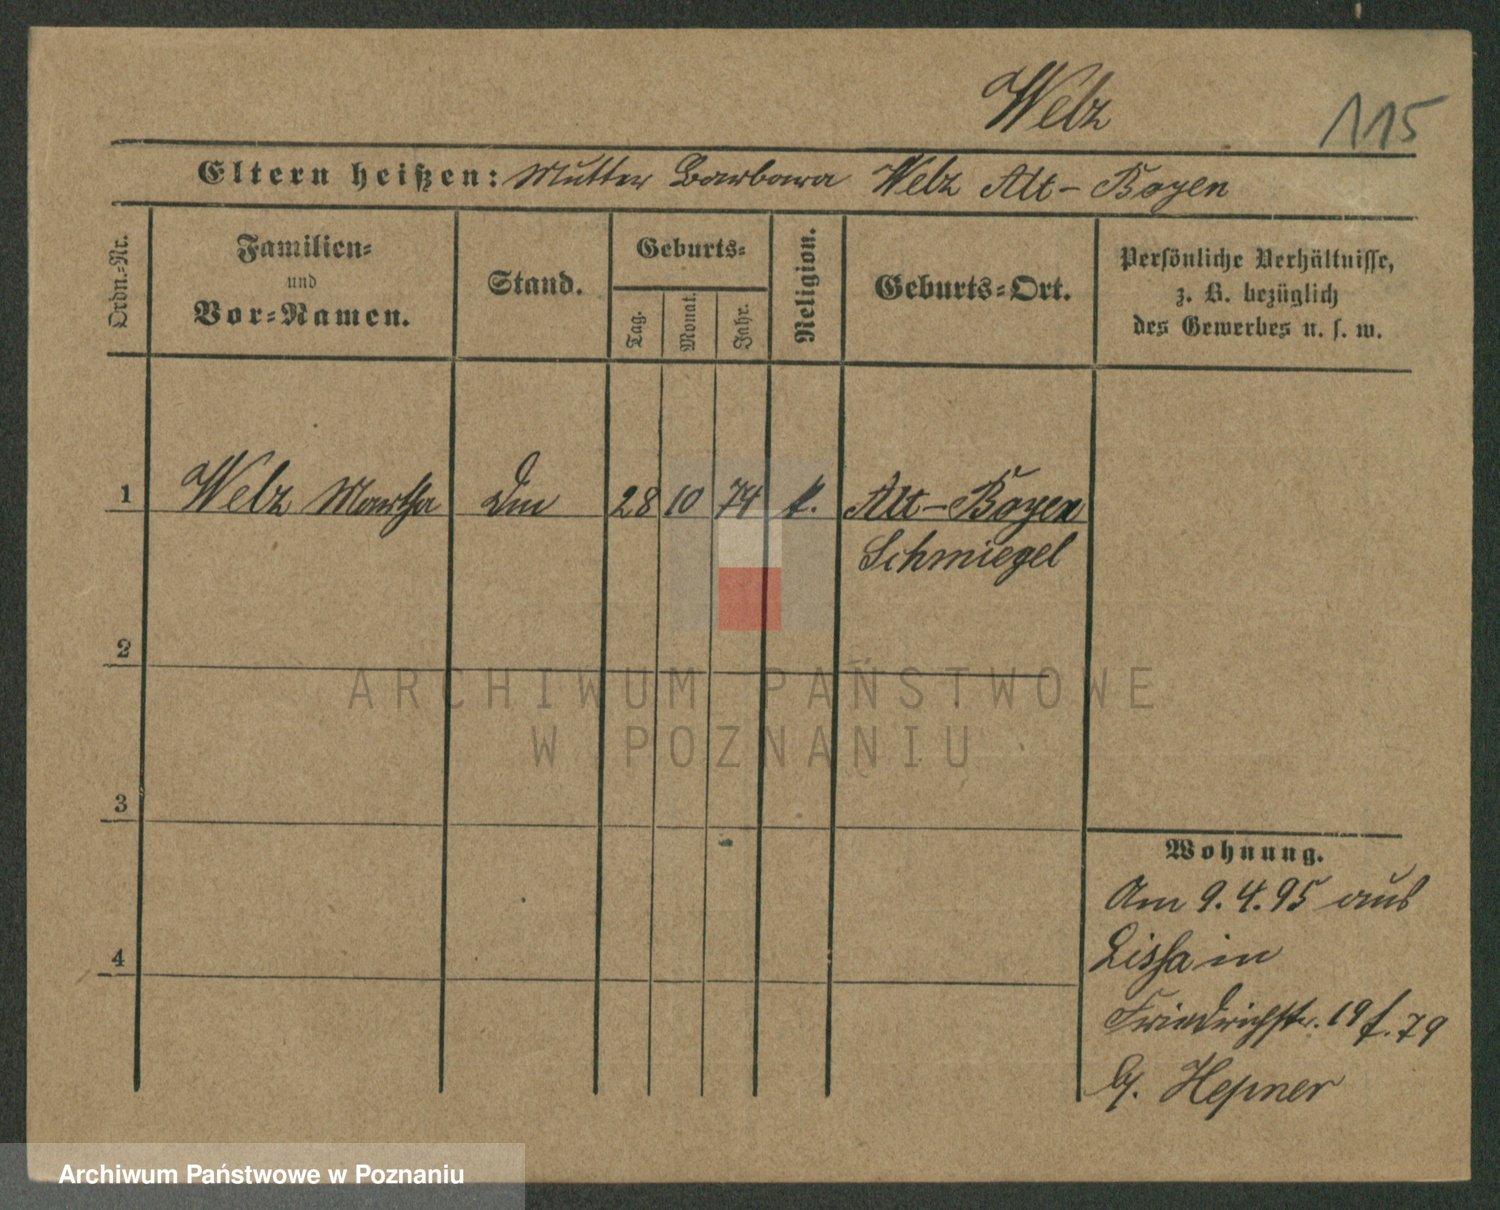 Welz
115
Eltern heißen: Mutter Barbara Welz Alt-Boyen
Ordn.-Nr.
Familien-
und
Vor-Namen.
Stand.
Geburts-
Tag.
Monat.
Jahr.
Religion.
Geburts-Ort.
Persönliche Verhältnisse,
z. B. bezüglich
des Gewerbes u. s. w.
1 Welz Martha 28 10 74 k. Alt-Boyen
Schmiegel
2
3
4
Wohnung.
Am 9.4.95 aus
Lissa in
Friedrichstr. 19 f. 79
b/. Hepner
ARCHIWUM PAŃSTWOWE
W POZNANIU
Archiwum Państwowe w Poznaniu